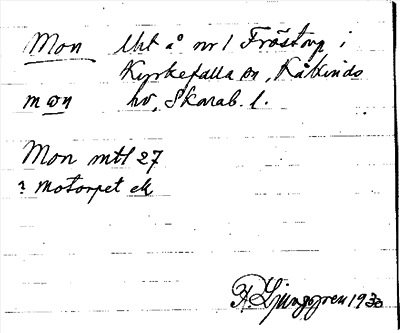 Mon Uht å nr 1 Fröstorp i
Kyrkefalla sn, Kåkinds
mɷn hd, Skarab. l.
Mon mtl 27
? motorpet ek
R. Ljunggren 1930